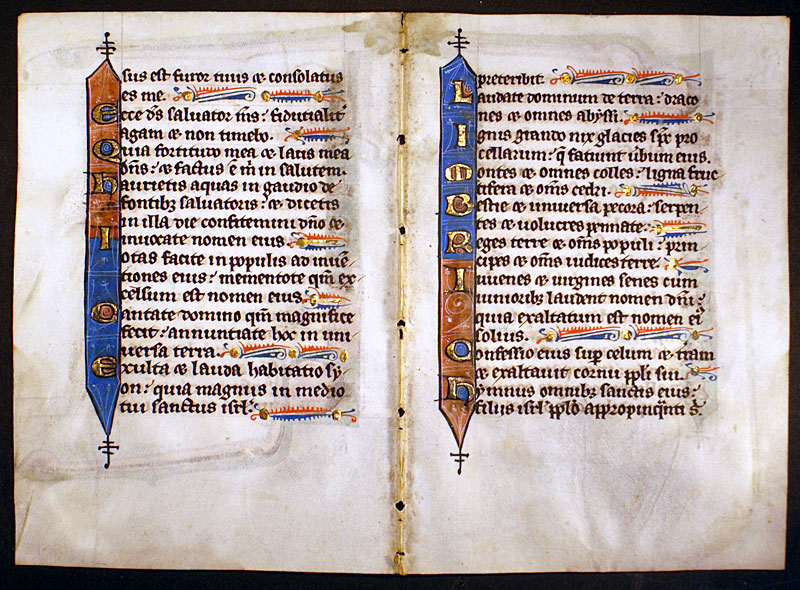 sus est furor tuus & consolatus
es me.
Ecce dñs saluator m̃s: fidutialit̃
agam & non timebo.
Quia fortitudo mea & laus mea
dñs: & factus ẽ m̃ in salutem.
haurietis aquas in gaudio de
fontib; saluatoris: & dicetis
in illa die confitemini dño &
inuocate nomen eius
Iotas facite in populis ad inuẽ
ciones eius: mementote qm̃ ex
celsum est nomen eius
Cantate domino qm̃ magnifice
fecit: annuntiate hoc in uni
uersa terra.
Exulta & lauda habitatio sy
on: quia magnus in medio
tui sanctus isrł.
preteribit.
Laudate dominum de terra: draco
nes & omnes abyssi.
Ignis grando nix glacies sp̃c pro
cellarum: q̃ faciunt uerbum eius.
Montes & omnes colles: ligna fruc
tifera & om̃s cedri.
Bestie & uniuersa pecora: serpen
tes & uolucres pennate.
Reges terre & om̃s populi: prin
cipes & om̃s iudices terre.
Iuuenes & uirgines senes cum
iuniorib; laudent nomen dñi:
quia exaltatum est nomen ei9
solius.
Confessio eius sup̃ celum & t̃ram
& exaltauit cornu pp̃li sui.
hymnus omnib; sanctis eius:
filiis isrł pp̃lo appropinq̃nti s̃